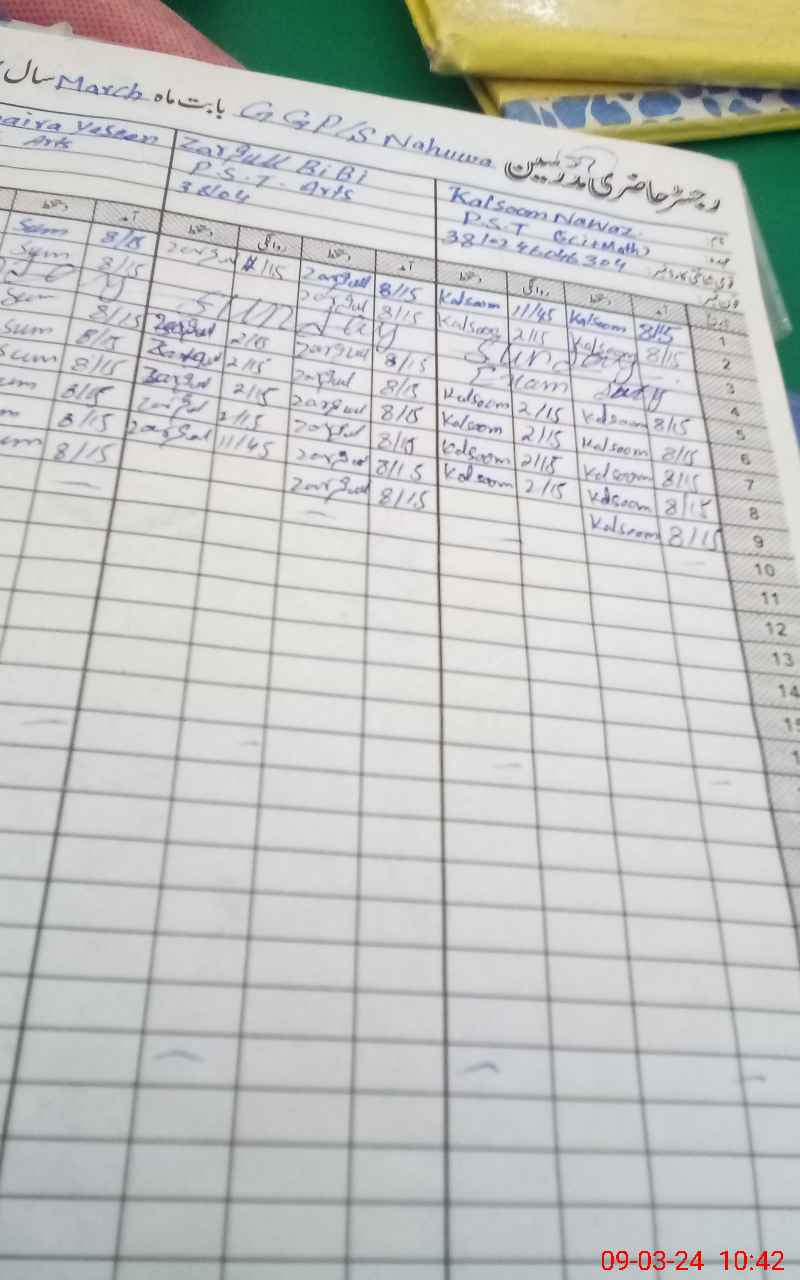 رجسٹر حاضری مدرسین GGP/S Nahuwa بابت ماہ March سال
Kalsoom Nawaz
P.S.T (Sci+Math)
Zargull BiBi
P.S.T. Arts
38104
aira Yaseen
Arts
آمد دستخط روانگی دستخط آمد دستخط روانگی دستخط آمد دستخط
1 8/15 Kalsoom 11/45 Kalsoom 8/15 Zargul 11/15 Zargul 8/15 Sum
2 8/15 Kalsoom 2/15 Kalsoom 8/15 Zargul 8/15 Sum
3 Sunday Sunday
4 Exam duty 8/15 Zargul 2/15 Zargul 8/15 Sum
5 8/15 Kalsoom 2/15 Kalsoom 8/15 Zargul 2/15 Zargul 8/15 Sum
6 8/15 Kalsoom 2/15 Kalsoom 8/15 Zargul 2/15 Zargul 8/15 Sum
7 8/15 Kalsoom 2/15 Kalsoom 8/15 Zargul 2/15 Zargul 8/15 um
8 8/15 Kalsoom 2/15 Kalsoom 8/15 Zargul 11/45 Zargul 8/15 m
9 8/15 Kalsoom 8/15 Zargul 8/15 um
10
11
12
13
14
09-03-24 10:42